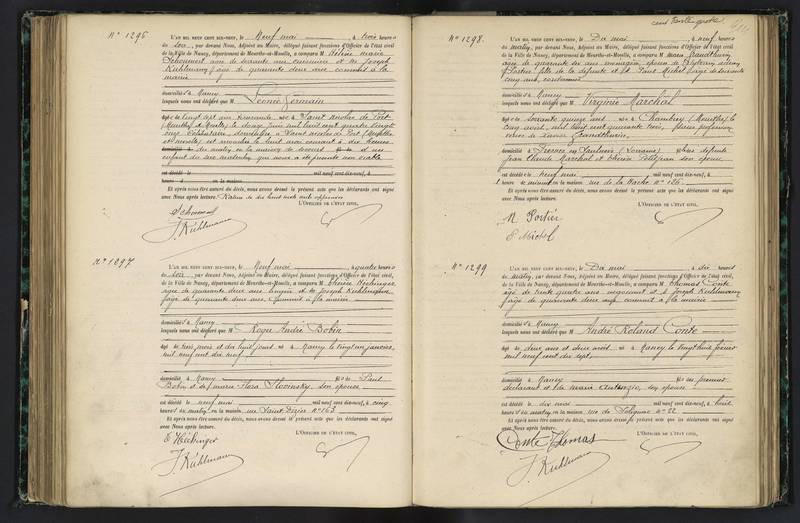 N° 1296
L'AN MIL NEUF CENT DIX-NEUF, le Neuf mai, à trois heures
du soir, par devant Nous, Adjoint au Maire, délégué faisant fonctions d'Officier de l'état civil
de la Ville de Nancy, département de Meurthe-et-Moselle, a comparu M Hélène Marie
Schoumert âgée de soixante ans cuisinière et de Joseph
Kuhlmann âgé de quarante deux ans commis à la
mairie
domicilié s à Nancy
lesquels nous ont déclaré que M Léonie Germain
âgé e de vingt sept ans née à Saint Nicolas de Port
(Meurthe et Moselle) le douze juin mil huit cent quatre vingt
onze célibataire, domiciliée à Saint Nicolas de Port (Meurthe
et Moselle) est accouchée le huit mai courant à dix heures
du matin, en la maison de secours d'un
enfant du sexe masculin qui nous a été présenté non viable
est décédé le mil neuf cent dix-neuf, à
heures d en la maison
Et après nous être assuré du décès, nous avons dressé le présent acte que les déclarants ont signé
avec Nous après lecture.
L'OFFICIER DE L'ÉTAT CIVIL,
Schoumert
J. Kuhlmann
N° 1297
L'AN MIL NEUF CENT DIX-NEUF, le Neuf mai, à quatre heures
du soir, par devant Nous, Adjoint au Maire, délégué faisant fonctions d'Officier de l'état civil
de la Ville de Nancy, département de Meurthe-et-Moselle, a comparu M Thérèse Hechinger
âgée de quarante deux ans, lingère et de Joseph Kuhlmann
âgé de quarante deux ans, commis à la mairie
domicilié s à Nancy
lesquels nous ont déclaré que M Roger André Bobin
âgé de trois mois et dix huit jours né à Nancy le vingt un janvier
mil neuf cent dix neuf
domicilié à Nancy fils de Paul
Bobin et de Marie Flora Slovinsky, son épouse
est décédé le neuf mai mil neuf cent dix-neuf, à cinq
heures du matin, en la maison rue Saint Dizier n° 163
Et après nous être assuré du décès, nous avons dressé le présent acte que les déclarants ont signé
avec Nous après lecture.
L'OFFICIER DE L'ÉTAT CIVIL,
Hechinger
J. Kuhlmann
N° 1298
L'AN MIL NEUF CENT DIX-NEUF, le Dix mai, à neuf heures
du matin, par devant Nous, Adjoint au Maire, délégué faisant fonctions d'Officier de l'état civil
de la Ville de Nancy, département de Meurthe-et-Moselle, a comparu M
domicilié s à Nancy
lesquels nous ont déclaré que M Virginie Marchal
âgé e de soixante quinze ans née à Chambrey (Meurthe) le
cinq avril mil huit cent quarante trois, sans profession
domiciliée à
Jean Claude Marchal et son épouse
est décédé e le neuf mai mil neuf cent dix-neuf, à
en la maison rue de la Hache n° 126
Et après nous être assuré du décès, nous avons dressé le présent acte que les déclarants ont signé
avec Nous après lecture.
L'OFFICIER DE L'ÉTAT CIVIL,
M Portier
E Michel
N° 1299
L'AN MIL NEUF CENT DIX-NEUF, le Dix mai, à dix heures
du matin, par devant Nous, Adjoint au Maire, délégué faisant fonctions d'Officier de l'état civil
de la Ville de Nancy, département de Meurthe-et-Moselle, a comparu M Thomas Conte
âgé de trente quatre ans négociant et de Joseph Kuhlmann
âgé de quarante deux ans commis à la mairie
domicilié s à Nancy
lesquels nous ont déclaré que M André Roland Conte
âgé de deux ans et deux mois né à Nancy le vingt huit février
mil neuf cent dix sept
domicilié à Nancy fils du premier
déclarant et de Marie son épouse
est décédé le dix mai mil neuf cent dix-neuf, à huit
heures du matin, en la maison rue de n° 22
Et après nous être assuré du décès, nous avons dressé le présent acte que les déclarants ont signé
avec Nous après lecture.
L'OFFICIER DE L'ÉTAT CIVIL,
Conte Thomas
J. Kuhlmann